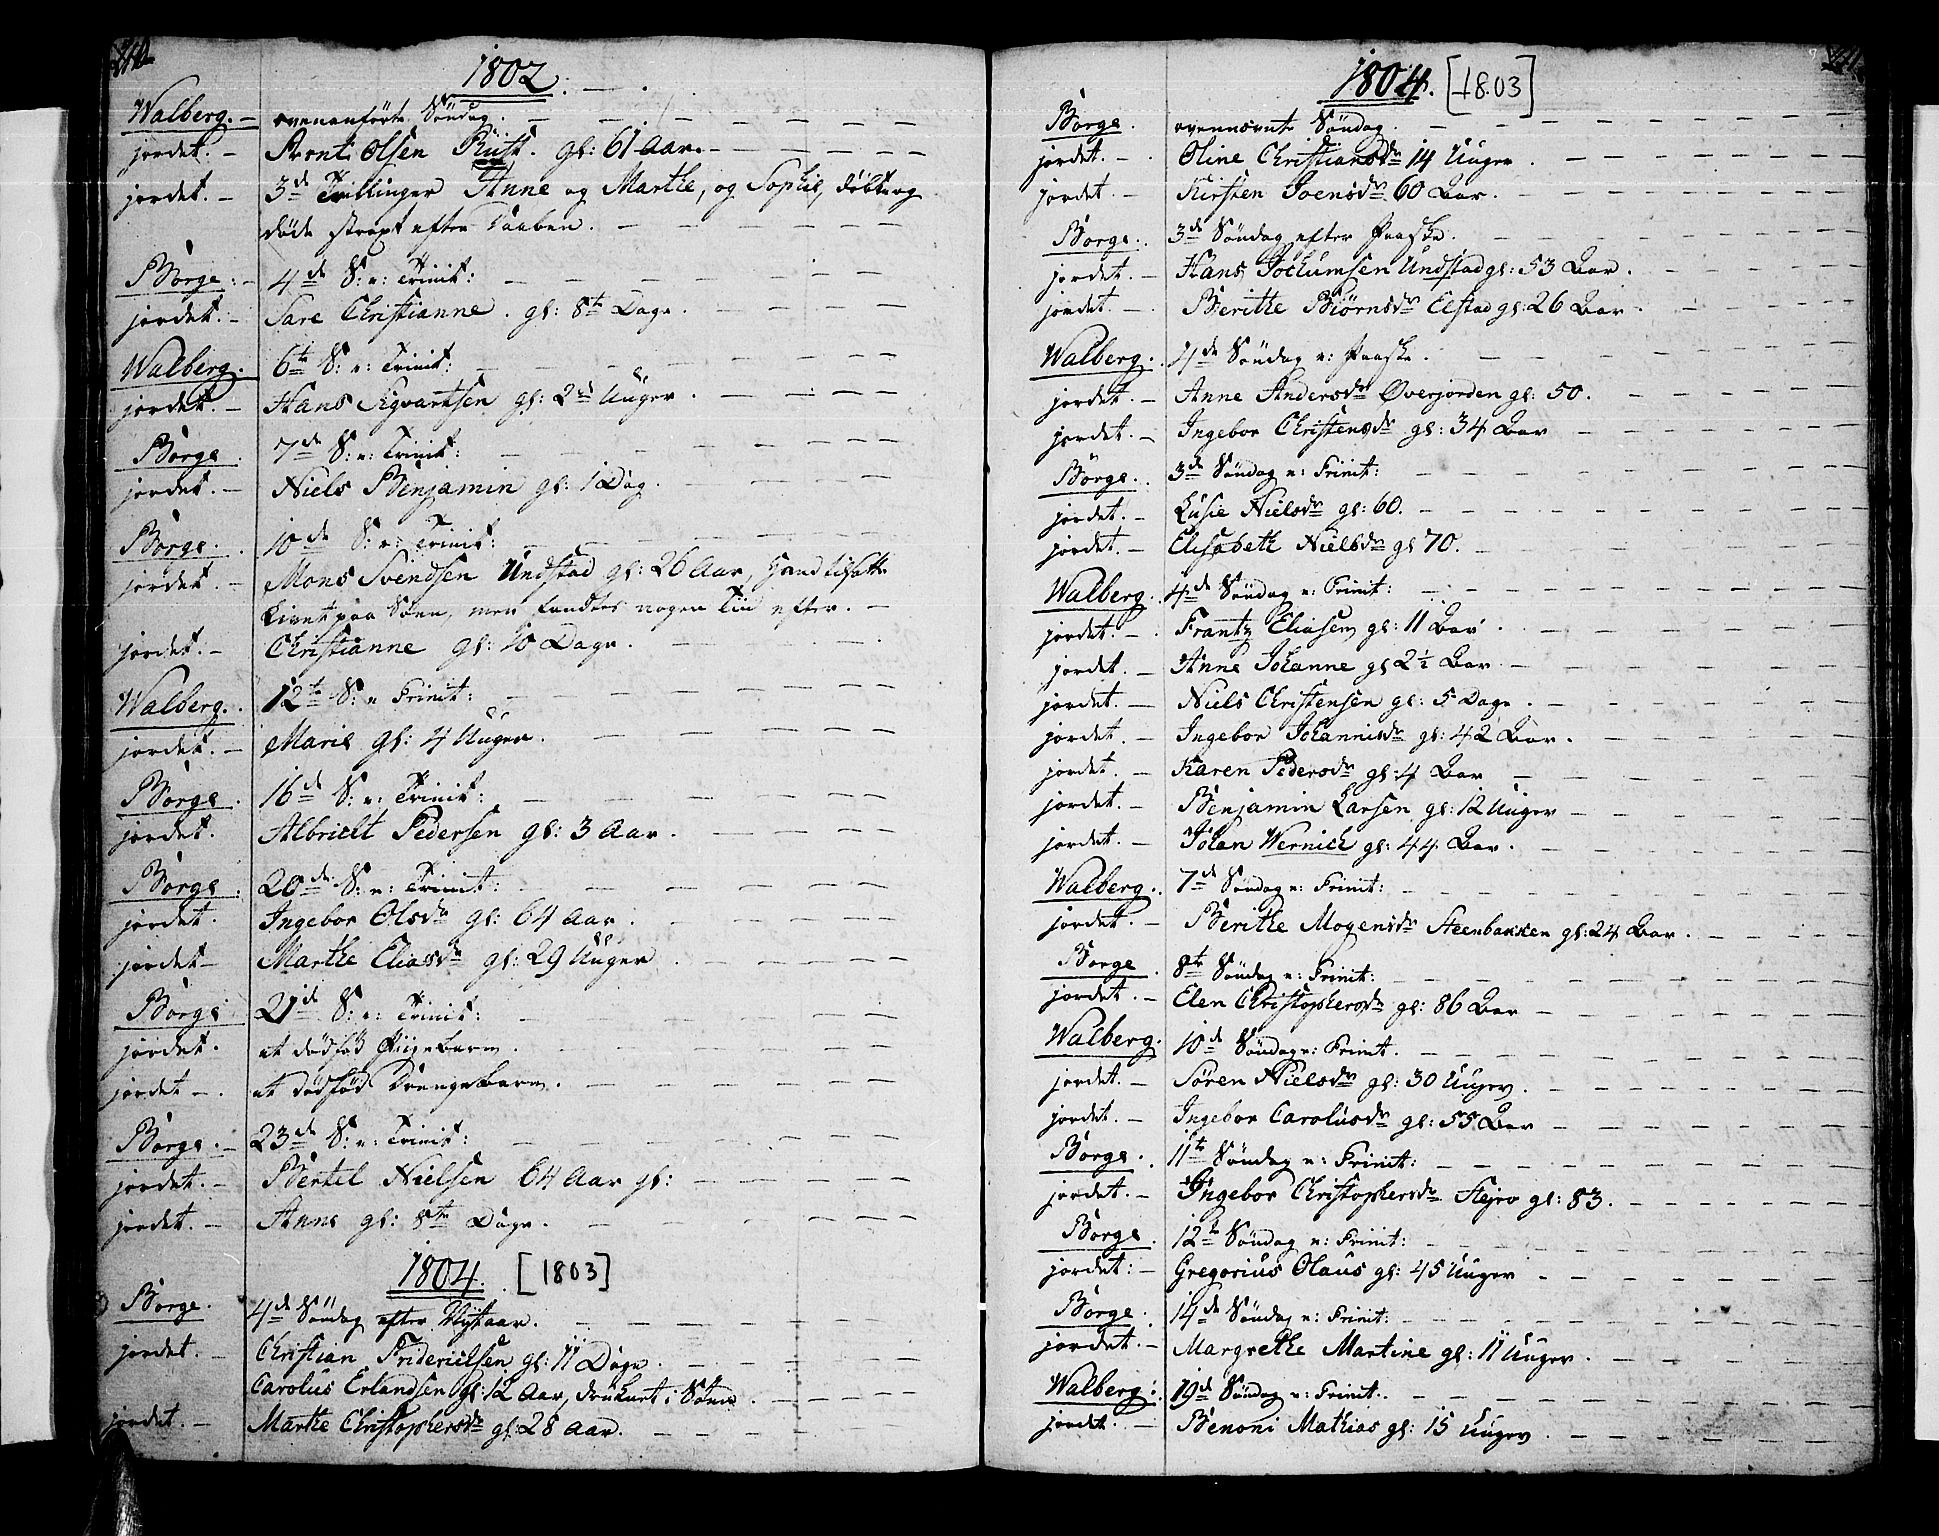 1802.
Walberg. — ovenanförte Söndag.
jordet. — Arent Olsen Rüst. gl: 61 Aar.
jordet. — 3de Trillinger Anne og Marthe, og Sophie, döbt og
döde strax efter Daaben.
Borge: — 4de S: e: Trinit:
jordet: — Sare Christianne. gl: 8te Dage.
Walberg. 6te S: e: Trinit:
jordet. — Hans Sigvartsen gl: 2de Uuger.
Borge. 7de S: e: Trinit:
jordet. — Niels Benjamin gl: 1 Dag.
Borge. 10de S: e: Trinit:
jordet. — Mons Svendsen Undstad gl: 26 Aar, hand tilsatte
Livet paa Söen, men fandtes nogen Tiid efter. —
jordet. — Christianne gl: 10 Dage.
Walberg. 12te S: e Trinit:
jordet. — Marie gl: 4 Uuger.
Borge. 16de S: e: Trinit:
jordet. Albricht Pedersen gl: 3 Aar.
Borge. 20de S: e: Trinit:
jordet. Ingebor Olsdr gl: 64 Aar.
jordet — Marthe Eliasdr gl: 29 Uuger
Borge 21de S: e: Trinit:
jordet. et dödföd Piigebarn.
jordet — et dödföd Drengebarn.
Borge. — 23de S: e: Trinit:
jordet. — Bertel Nielsen 64 Aar gl:
jordet. — Anne gl: 8te Dage.
1804. [1803]
Borge. 4de Söndag efter Nytaar.
jordet. — Christian Friderichsen gl: 11 Dage.
Carolus Erlandsen gl: 12 Aar, druknet i Söen
jordet. — Marthe Christophersdr gl: 28 Aar.
1804. [1803]
Borge. ovennævnte Söndag.
jordet. — Oline Christiansdr 14 Uuger.
jordet. — Kirsten Svensdr 60 Aar.
Borge. 3de Söndag efter Paaske.
jordet. — Hans Jochumsen Undstad gl: 53 Aar.
jordet. — Berithe Biörnsdr Elstad gl: 26 Aar.
Walberg. 4de Söndag e: Paaske.
jordet. — Anne Andersdr Øverjorden gl: 50.
jordet. — Ingebor Christensdr gl: 34 Aar
Borge. 3de Söndag e: Trinit:
jordet. — Lusie Nielsdr gl: 60.
jordet. — Elisabeth Nielsdr gl 70.
Walberg. 4de Söndag e: Trinit:
jordet. — Frantz Eliasen gl: 11 Aar.
jordet. — Anne Johanne gl 2½ Aar.
jordet. — Niels Christensen gl: 5 Dage.
jordet. — Ingebor Johannisdr gl: 42 Aar.
jordet. — Karen Pedersdr gl: 4 Aar
jordet. — Benjamin Larsen gl: 12 Uuger
jordet. — Johan Wernich gl: 44 Aar.
Walberg. 7de Söndag e: Trinit:
jordet. — Berithe Mogensdr Steenbakken gl: 24 Aar.
Borge. 8te Söndag e: Trinit:
jordet. — Elen Christophersdr gl: 86 Aar
Walberg. 10de Söndag e: Trinit.
jordet. — Sören Nielsdr gl: 30 Uuger.
jordet. — Ingebor Carolusdr gl: 55 Aar
Borge. 11te Söndag e: Trinit:
jordet. — Ingebor Christophersdr Stejro gl: 83.
Borge. 12te Söndag e: Trinit:
jordet: — Gregorius Olaus gl: 45 Uuger
Borge. 14de Söndag e: Trinit:
jordet. — Margrethe Martine gl: 11 Uuger.
Walberg: 19de Söndag e: Trinit.
jordet. — Benoni Mathias gl: 15 Uuger.